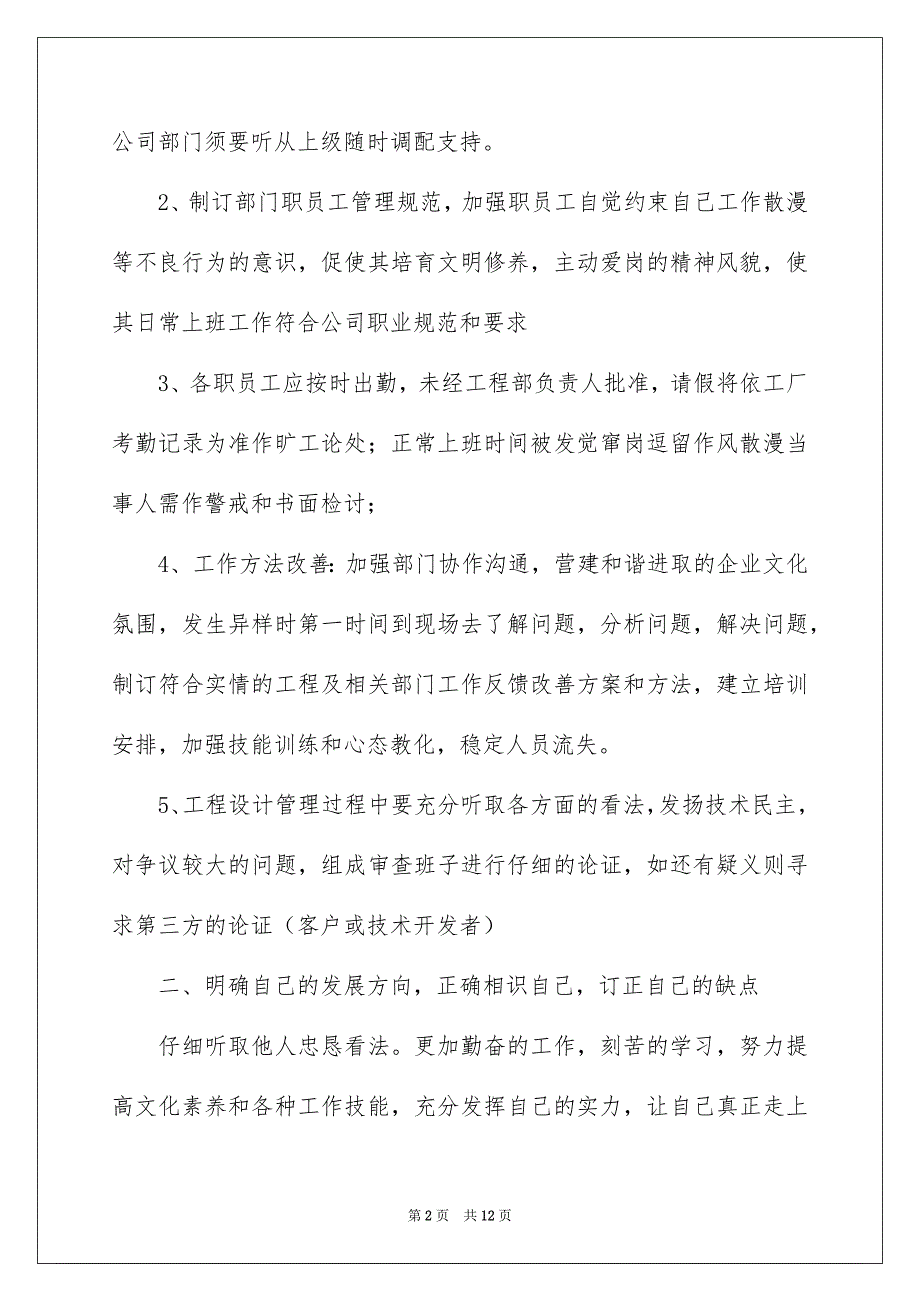 公司部门须要听从上级随时调配支持。
2、制订部门职员工管理规范，加强职员工自觉约束自己工作散漫
等不良行为的意识，促使其培育文明修养，主动爱岗的精神风貌，使
其日常上班工作符合公司职业规范和要求
3、各职员工应按时出勤，未经工程部负责人批准，请假将依工厂
考勤记录为准作旷工论处；正常上班时间被发觉窜岗逗留作风散漫当
事人需作警戒和书面检讨；
4、 工作方法改善：加强部门协作沟通，营建和谐进取的企业文化
氛围，发生异样时第一时间到现场去了解问题，分析问题，解决问题，
制订符合实情的工程及相关部门工作反馈改善方案和方法，建立培训
安排，加强技能训练和心态教化，稳定人员流失。
5、工程设计管理过程中要充分听取各方面的看法，发扬技术民主，
对争议较大的问题，组成审查班子进行仔细的论证，如还有疑义则寻
求第三方的论证（客户或技术开发者）
二、明确自己的发展方向，正确相识自己，订正自己的缺点
仔细听取他人忠恳看法。更加勤奋的工作，刻苦的学习，努力提
高文化素养和各种工作技能，充分发挥自己的实力，让自己真正走上
第 2 页 共 12 页